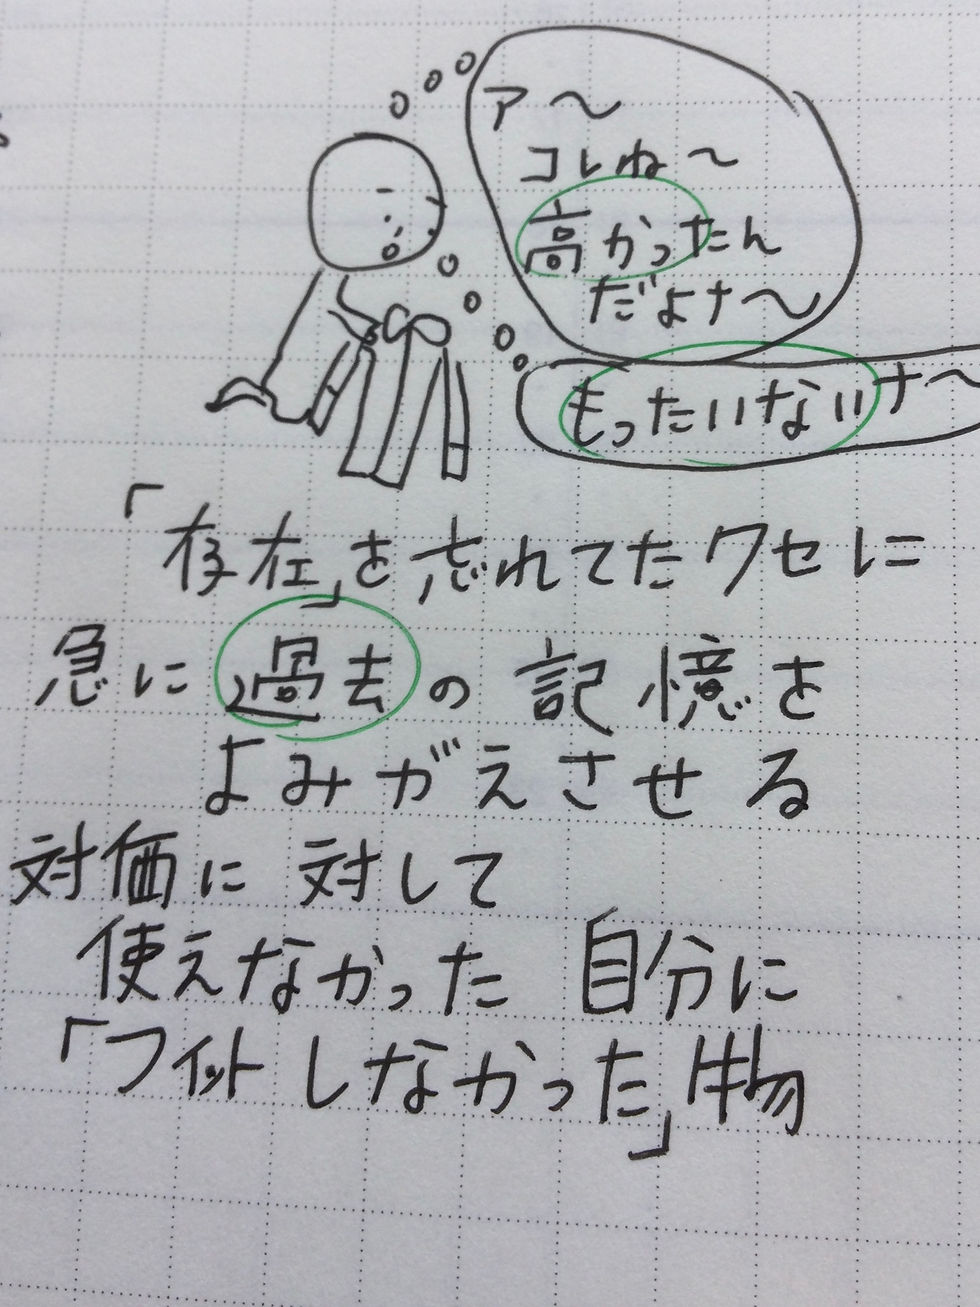 ア〜
コレね〜
高かったん
だよナ〜
もったいないナ〜
「存在」を忘れてたクセに
急に過去の記憶を
よみがえさせる
対価に対して
使えなかった自分に
「フィットしなかった」物